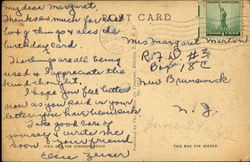 my dear Margaret
Thanks so much for the
box of things & also the
birthday card.
The things are all being
used & appreciate the
kind thought.
I hope you feel better
now as you said in your
letter you have been sick
Take good care of
yourself & write me
soon Your friend
POST CARD
Miss Margaret Martin
R.F.D. #3
Box 18C
New Brunswick
N.J.
THIS SIDE FOR ADDRESS